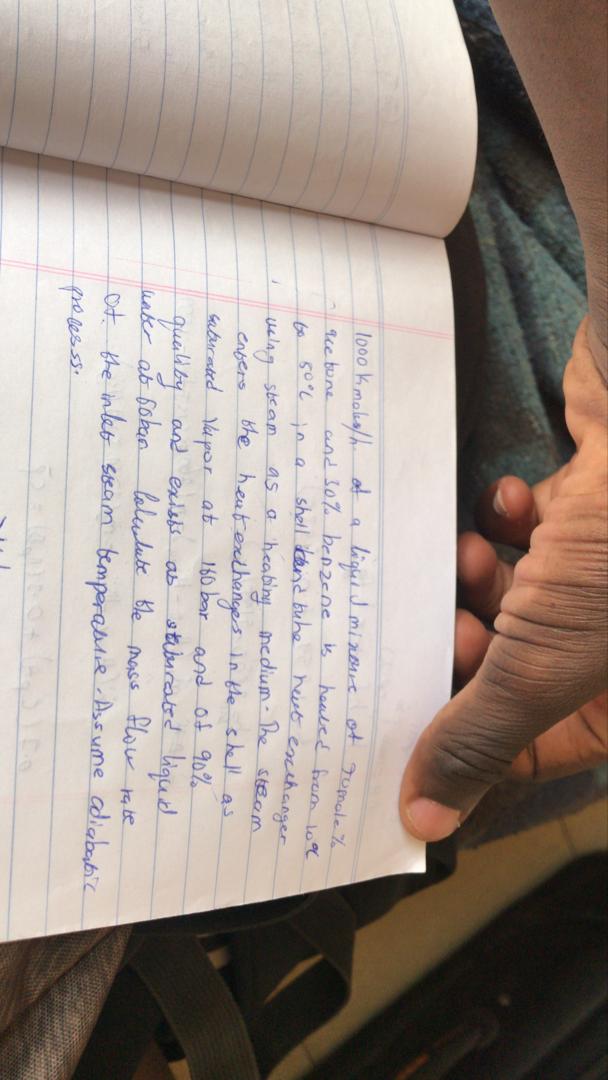 1000 kmoles/h of a liquid mixture of 70mole%
acetone and 30% benzene is heated from 10°C
to 50°C in a shell and tube heat exchanger
using steam as a heating medium. The steam
enters the heat exchanger in the shell as
saturated vapor at 160bar and of 90%
quality and exists as saturated liquid
water at bar Calculate the mass flow rate
of the inlet steam temperature. Assume adiabatic
process.